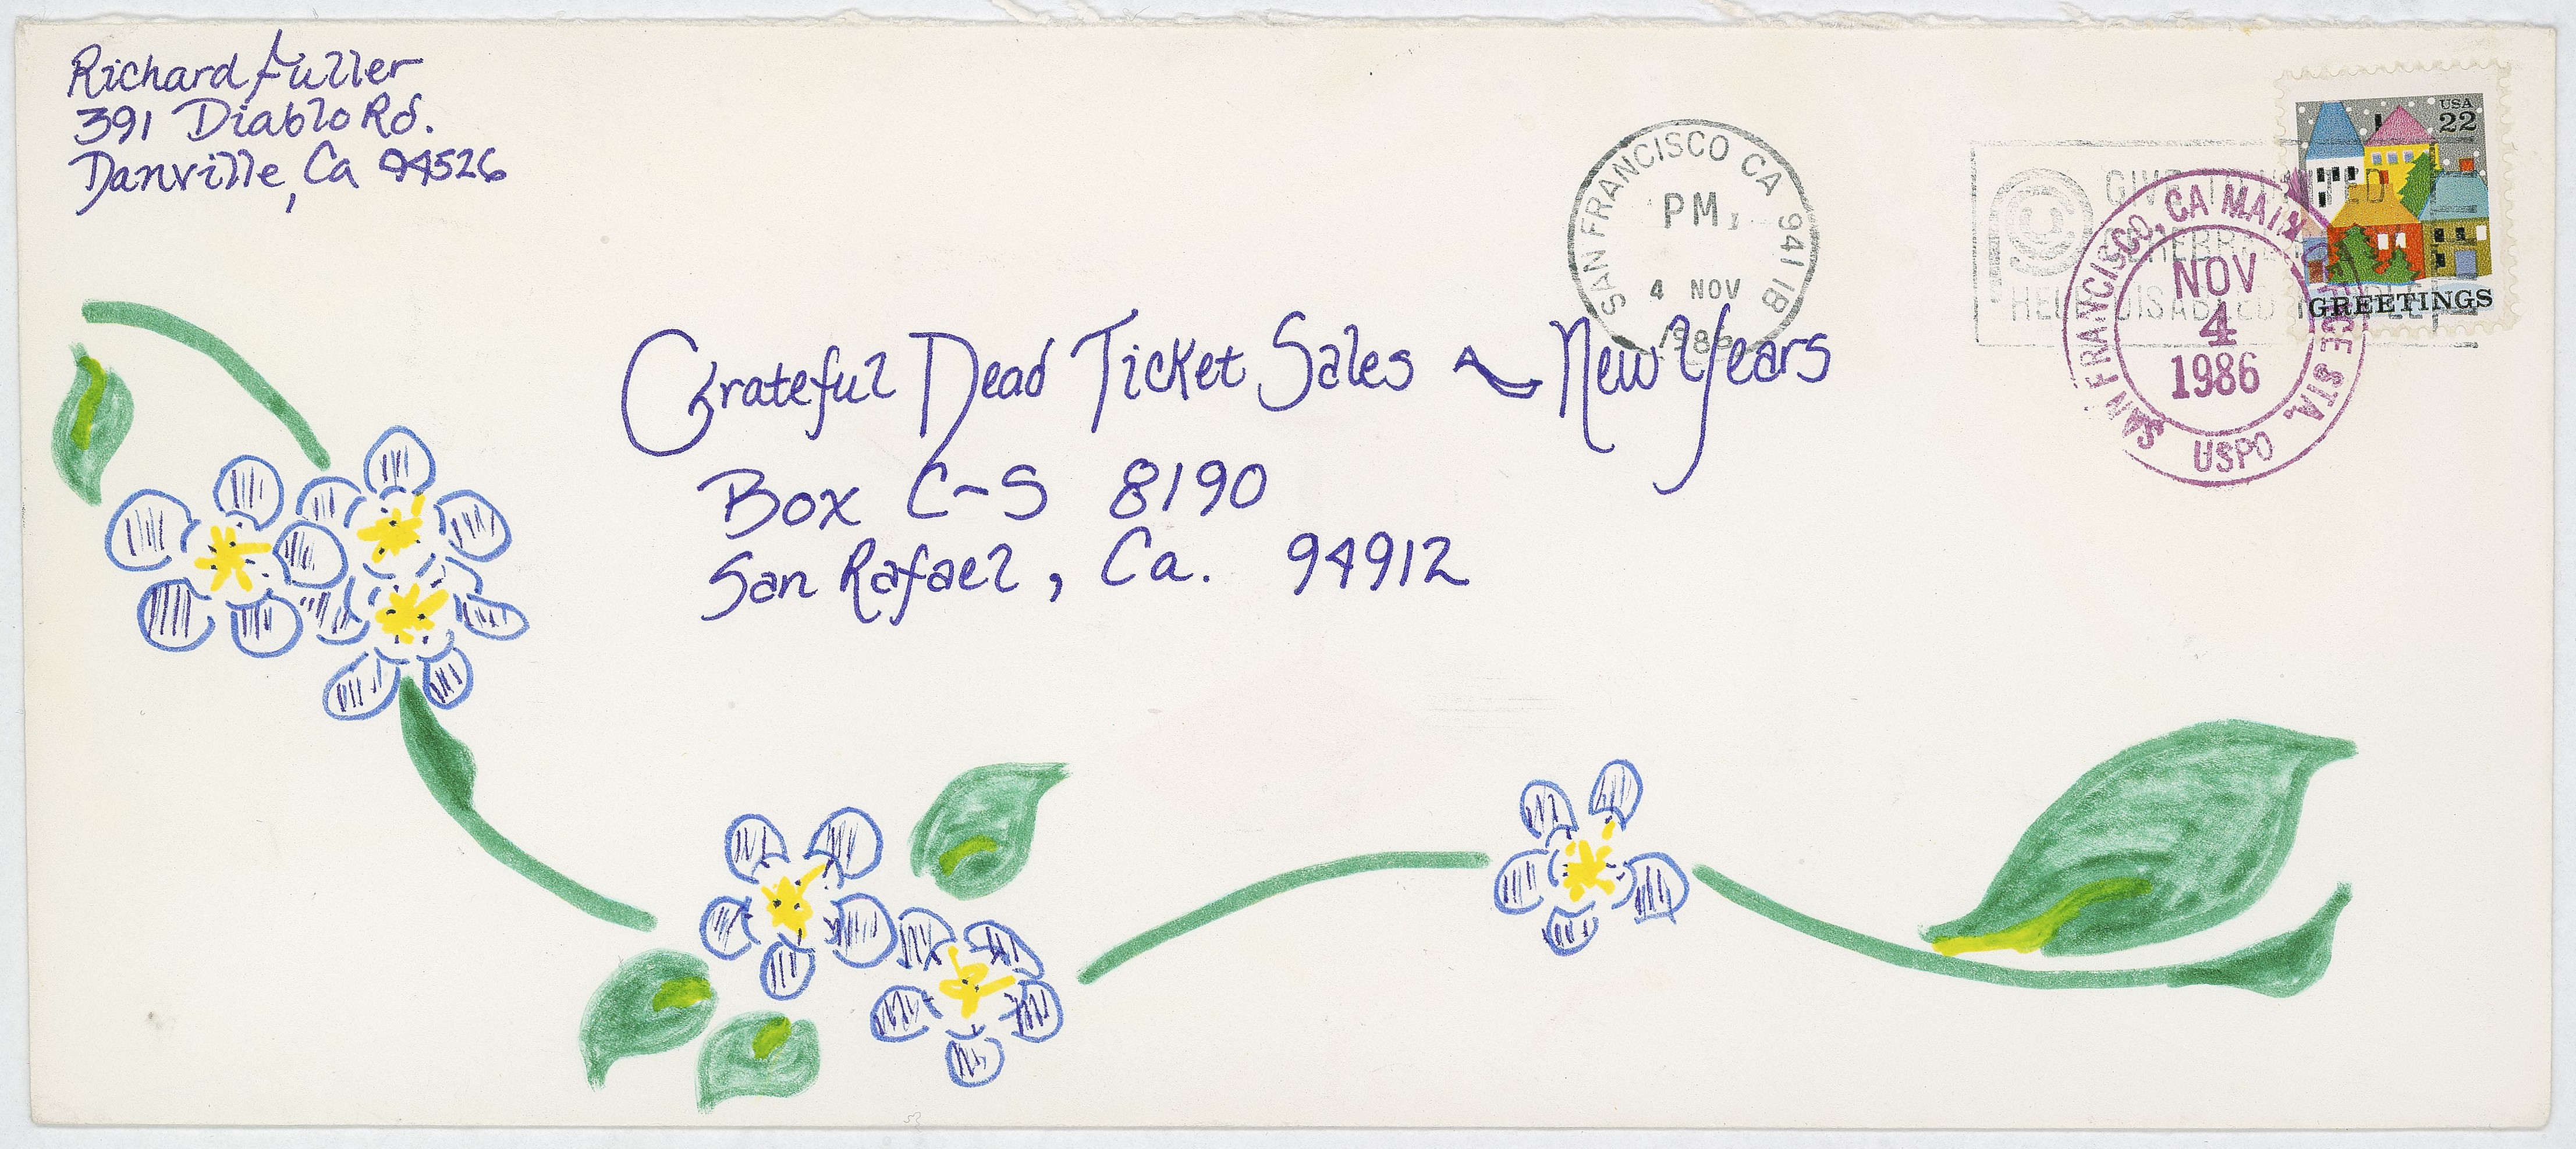 Richard Fuller
391 Diablo Rd.
Danville, Ca 94526
SAN FRANCISCO CA 941 1B
PM
4 NOV
1986
USA
22
GREETINGS
GIVE
HELP DISABLED
SAN FRANCISCO, CA MAIN OFFICE STA.
NOV
4
1986
USPO
Grateful Dead Ticket Sales ~ New Years
Box C-S 8190
San Rafael, Ca. 94912